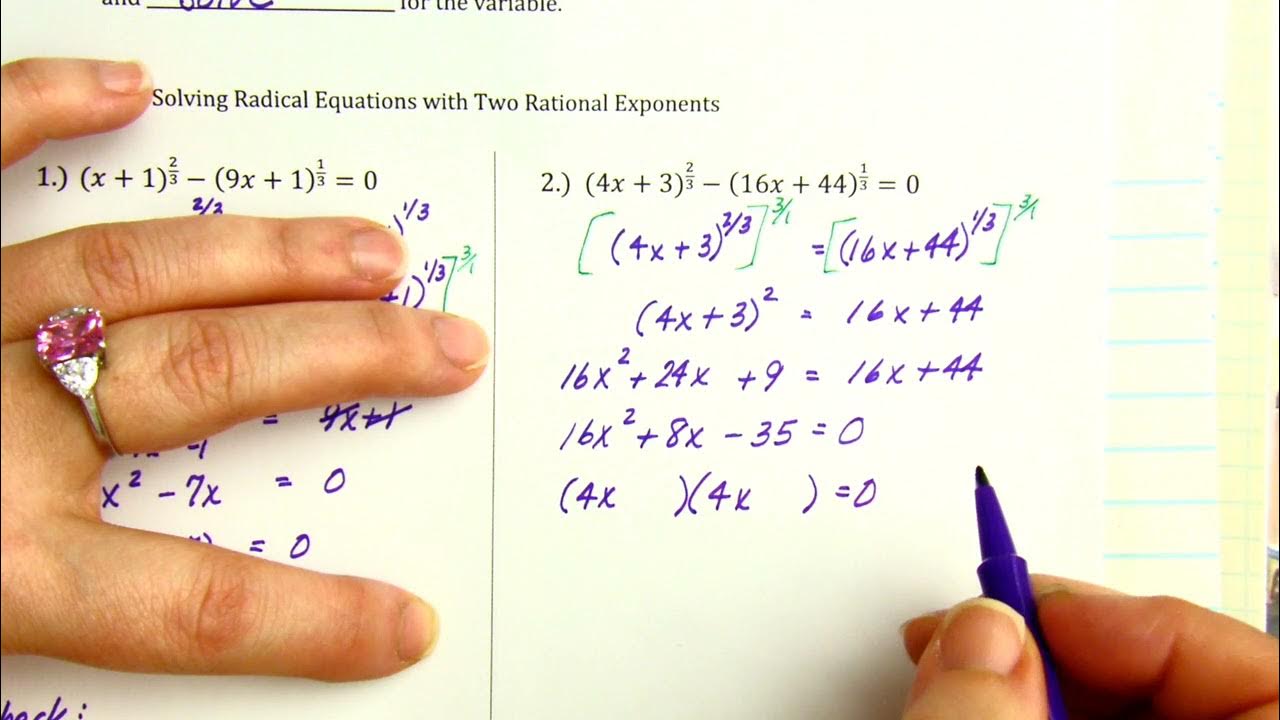 and solve for the variable.
Solving Radical Equations with Two Rational Exponents
1.) (x + 1)^(2/3) − (9x + 1)^(1/3) = 0
2/3
)^(1/3)
+1)^(1/3)]^(3/1)
= 9x+1
-1
x² − 7x = 0
) = 0
2.) (4x + 3)^(2/3) − (16x + 44)^(1/3) = 0
[(4x + 3)^(2/3)]^(3/1) = [(16x + 44)^(1/3)]^(3/1)
(4x + 3)² = 16x + 44
16x² + 24x + 9 = 16x + 44
16x² + 8x − 35 = 0
(4x )(4x ) = 0